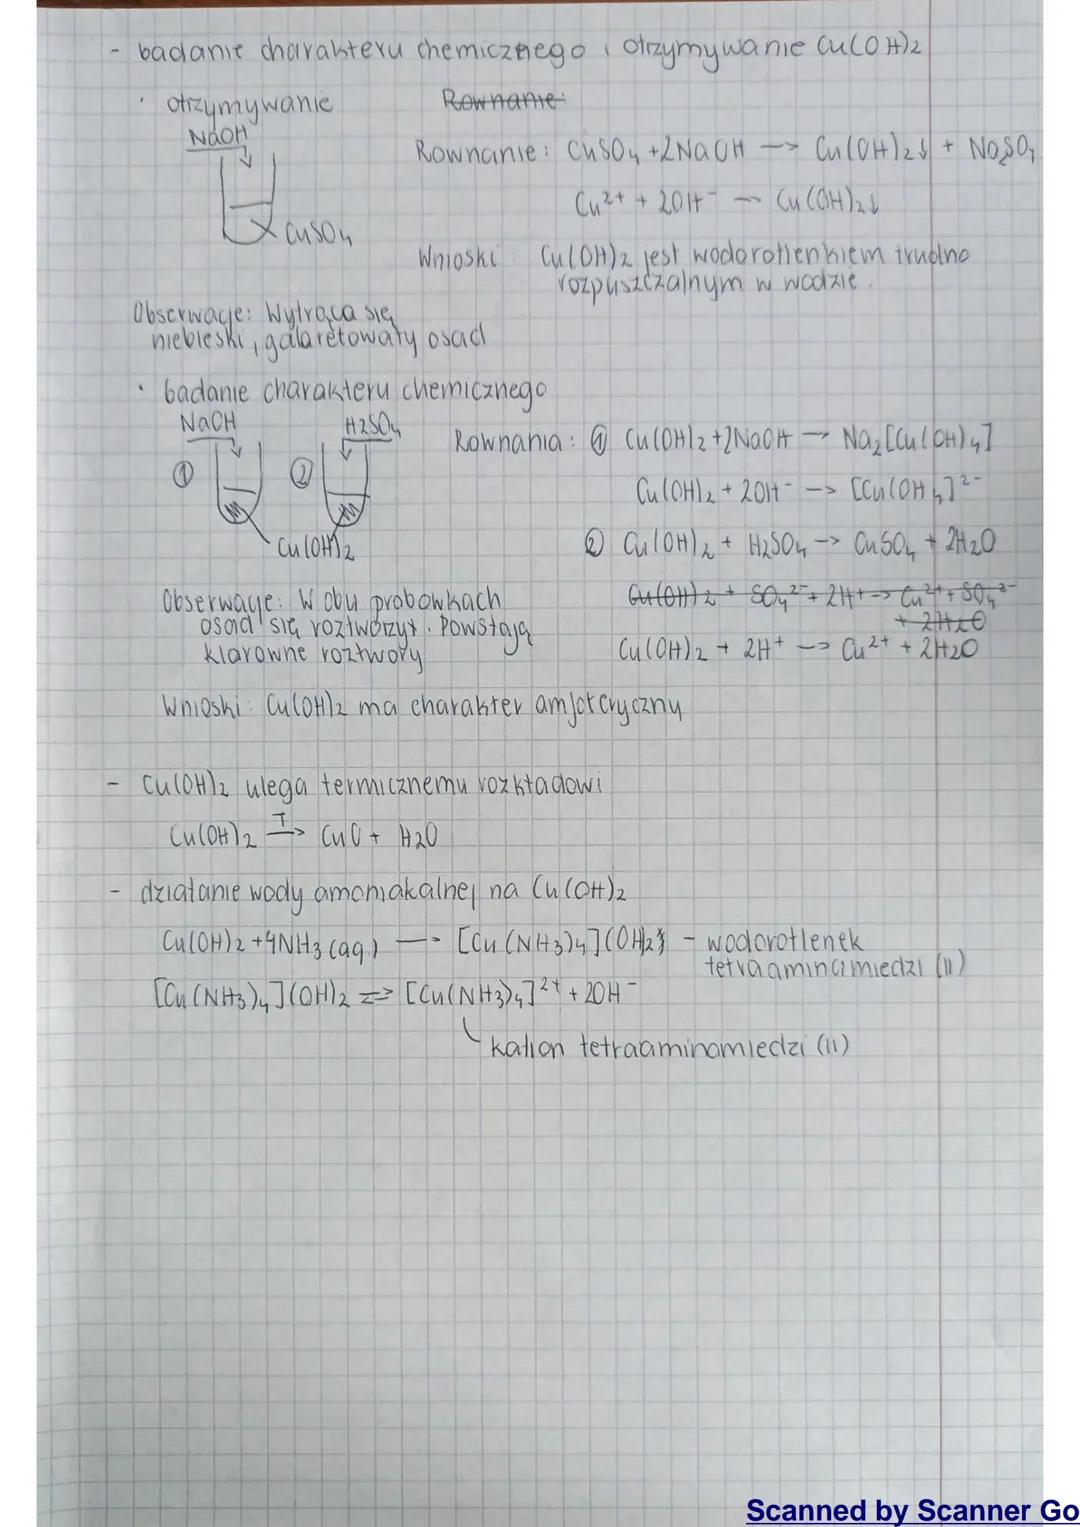 - badanie charakteru chemicznego i otrzymywanie Cu(OH)2
· otrzymywanie
Rownanie:
NaOH
Rownanie: CuSO4 + 2NaOH --> Cu(OH)2↓ + Na2SO4
Cu2+ + 2OH- --> Cu(OH)2↓
CuSO4
Wnioski: Cu(OH)2 jest wodorotlenkiem trudno
rozpuszczalnym w wodzie.
Obserwacje: Wytrąca się
niebieski, galaretowaty osad
· badanie charakteru chemicznego
NaOH
H2SO4
Rownania: ① Cu(OH)2 + 2NaOH → Na2[Cu(OH)4]
① ②
Cu(OH)2 + 2OH- --> [Cu(OH)4]2-
Cu(OH)2
② Cu(OH)2 + H2SO4 --> CuSO4 + 2H2O
Cu(OH)2 + SO42- + 2H+ --> Cu2+ + SO42-
+ 2H2O
Obserwacje: W obu probowkach
osad się roztworzył. Powstają
klarowne roztwory
Cu(OH)2 + 2H+ --> Cu2+ + 2H2O
Wnioski: Cu(OH)2 ma charakter amfoteryczny
- Cu(OH)2 ulega termicznemu rozkładowi
Cu(OH)2 T→ CuO + H2O
- działanie wody amoniakalnej na Cu(OH)2
Cu(OH)2 + 4NH3 (aq) —> [Cu(NH3)4](OH)2 - wodorotlenek
tetraaminamiedzi (II)
[Cu(NH3)4](OH)2 ⇌ [Cu(NH3)4]2+ + 2OH-
kation tetraaminamiedzi (II)
Scanned by Scanner Go